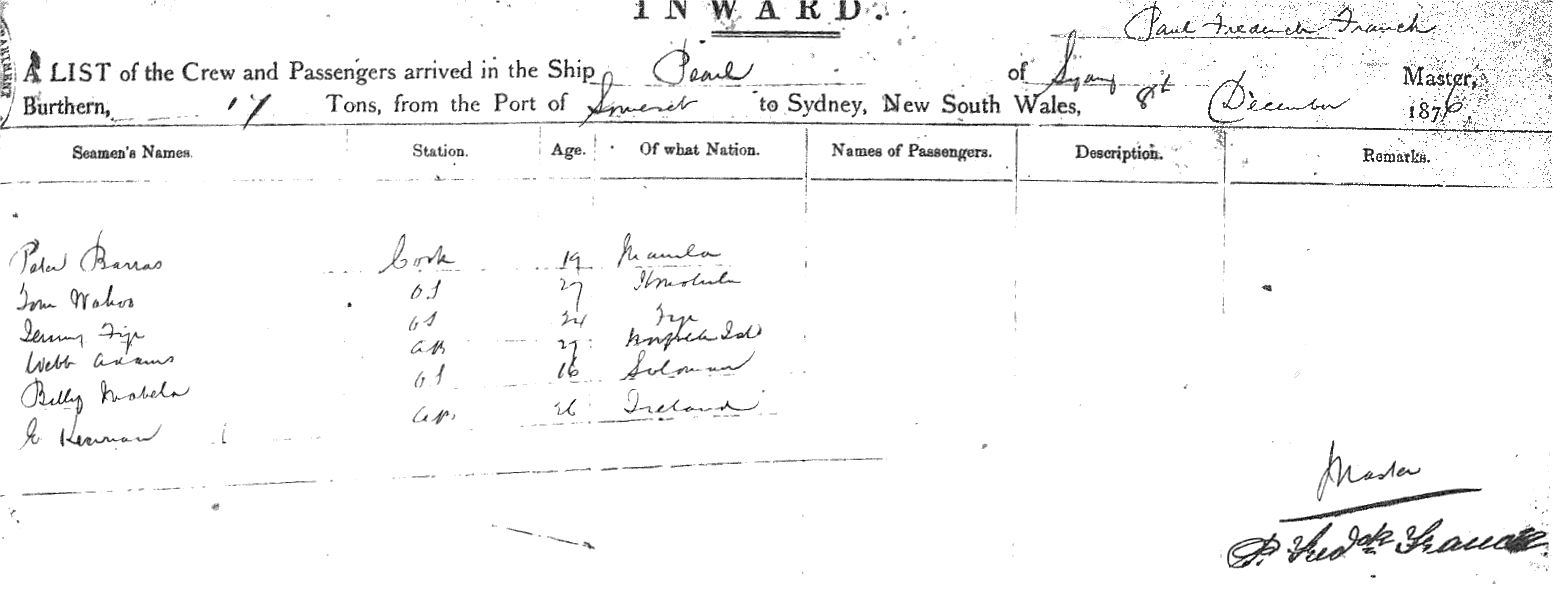 INWARD.
Paul Frederick Franck
A LIST of the Crew and Passengers arrived in the Ship Pearl of Sydney Master,
Burthern, 17 Tons, from the Port of Somerset to Sydney, New South Wales, 8th December 1876
Seamen's Names. Station. Age. Of what Nation. Names of Passengers. Description. Remarks.
Peter Barras Cook 19 Manila
Tom Wahoo OS 27 Honolulu
Jimmy Fiji OS 24 Fiji
Webb Adams AB 27 Norfolk Isd
Billy OS 16 Soloman
E Keernan AB 26 Ireland
Master
P. Fredck Franck